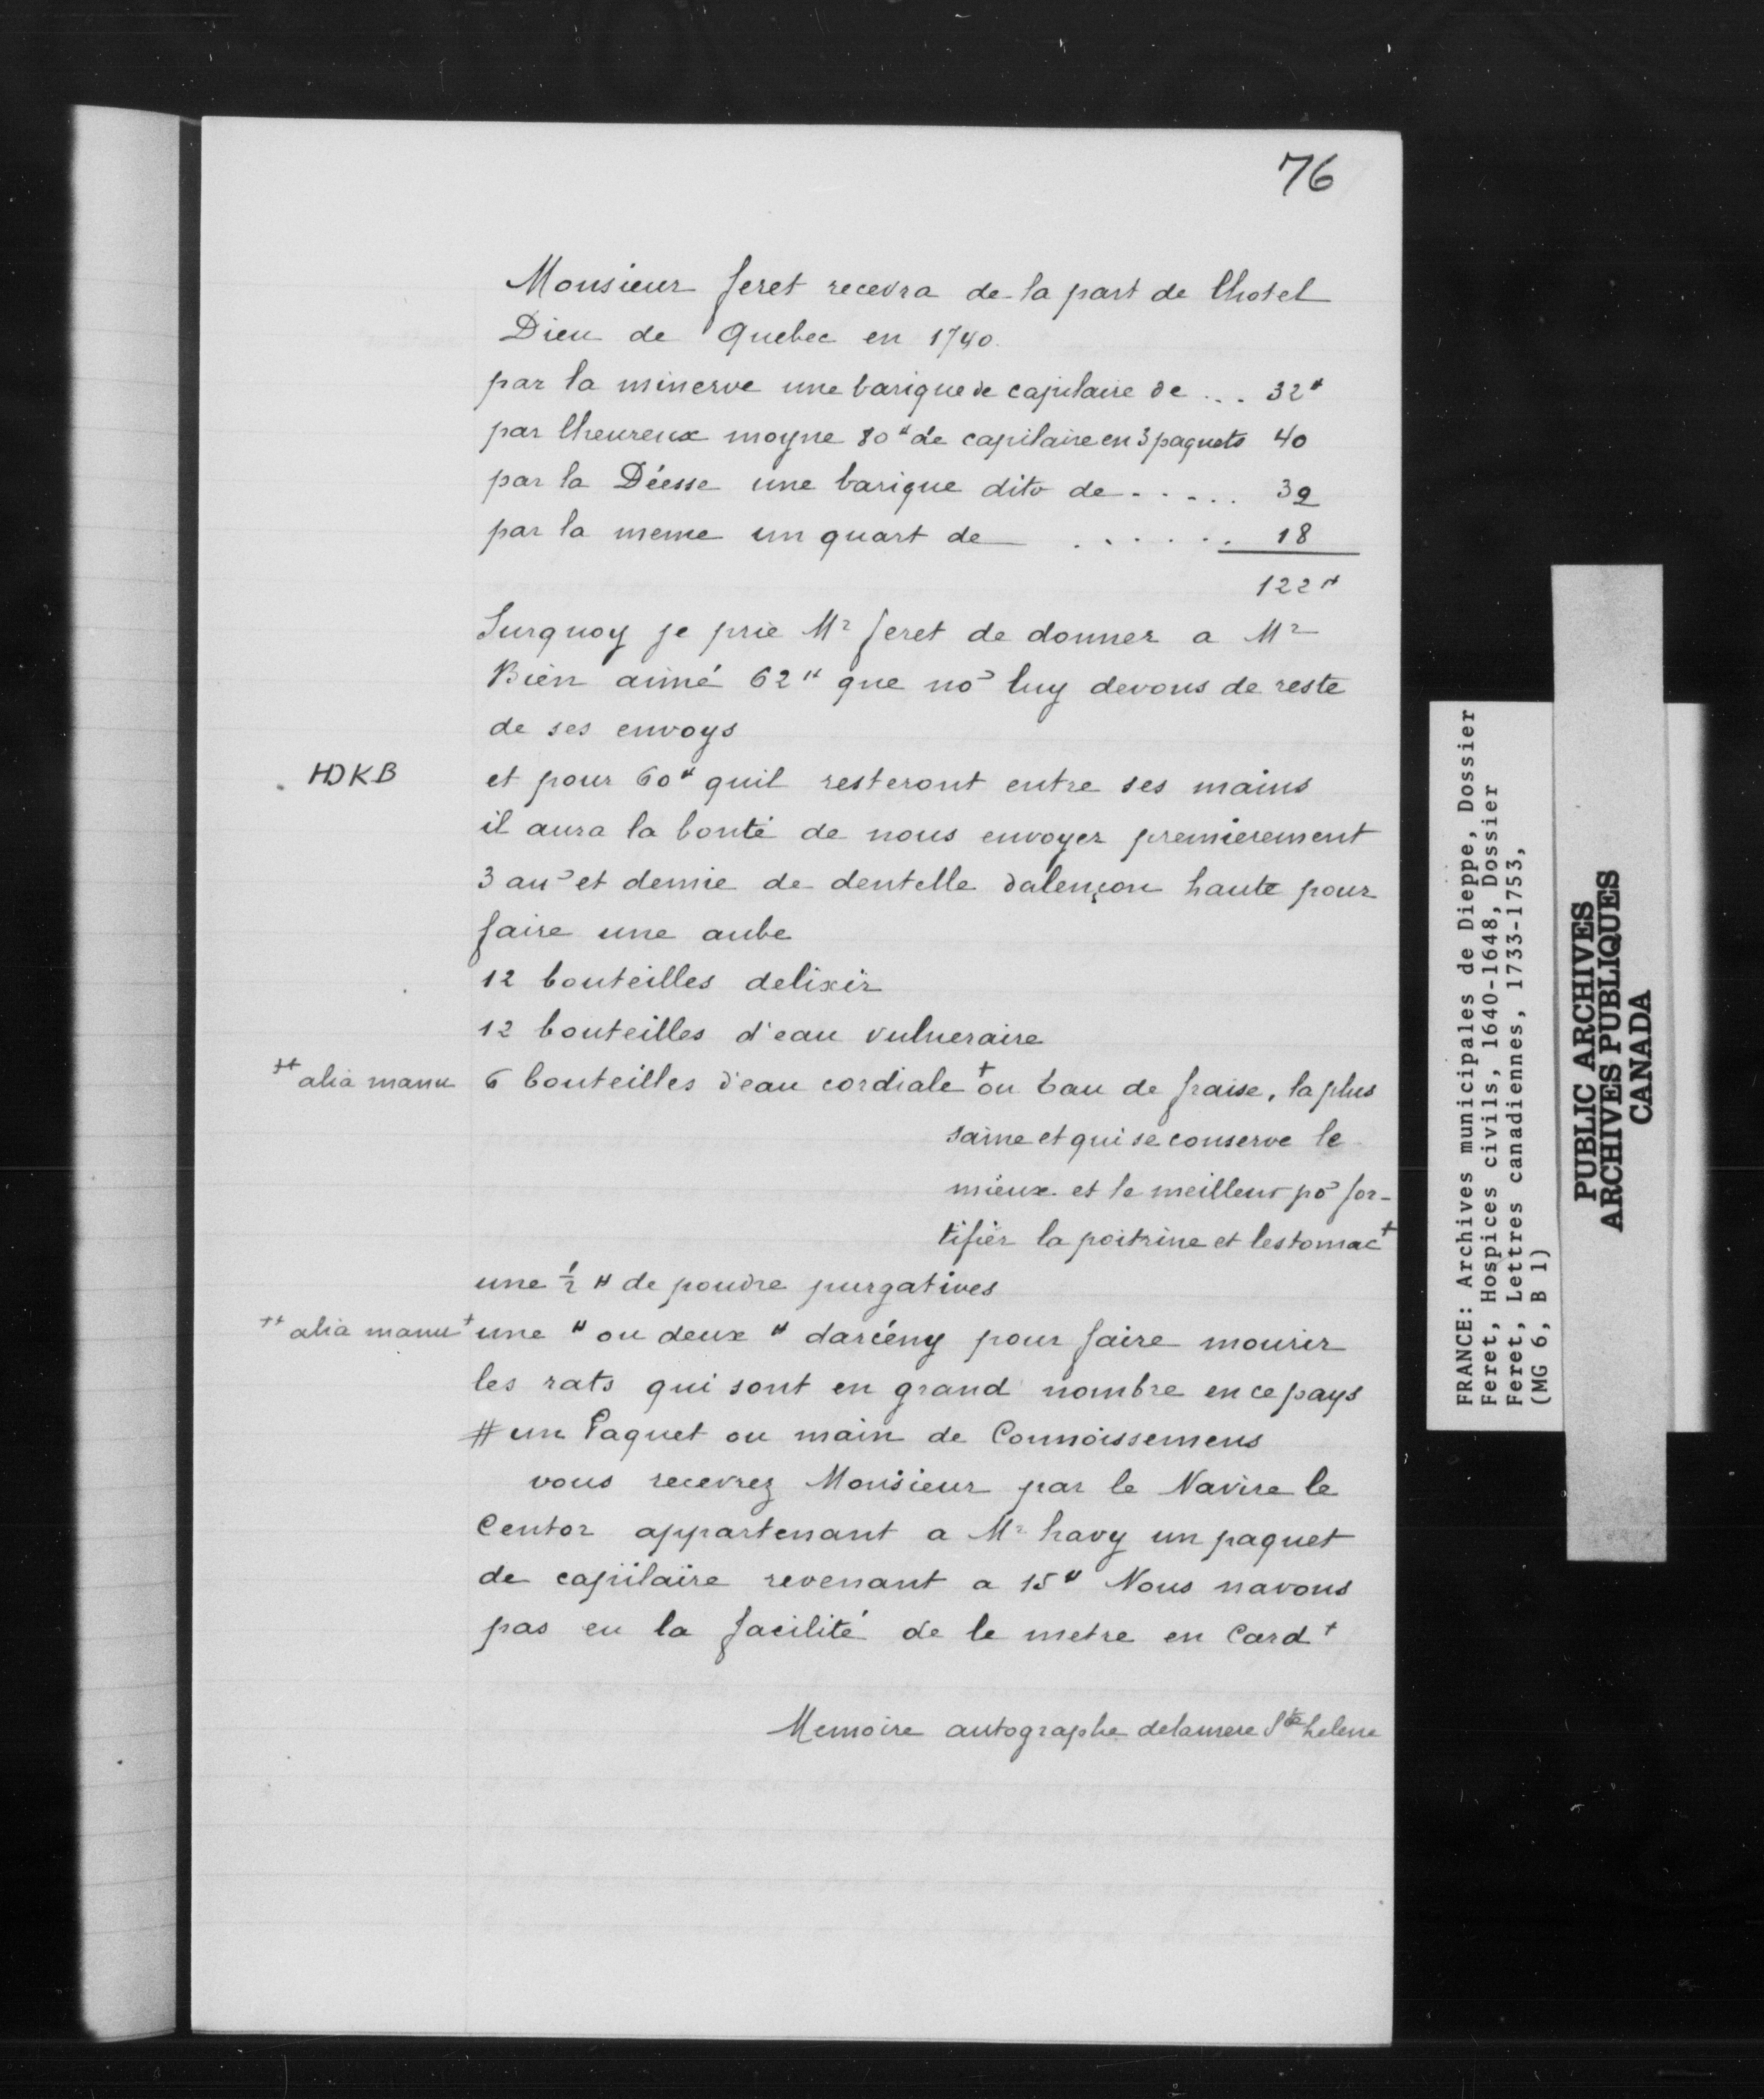 76
Monsieur feret recevra de la part de lhotel
Dieu de Quebec en 1740.
par la minerve une barique de capilaire de ... 32#
par lheureux moyne 80# de capilaire en 3 paquets 40
par la Déesse une barique dito de ..... 32
par la meme un quart de ...... 18
122#
Surquoy je prie Mr feret de donner a Mr
Bien aimé 62# que no⁹ luy devons de reste
de ses envoys
HDKB et pour 60# quil resteront entre ses mains
il aura la bonté de nous envoyer premierement
3 au⁹ et demie de dentelle dalençon haute pour
faire une aube
12 bouteilles delixir
12 bouteilles d'eau vulneraire
++ alia manu 6 bouteilles d'eau cordiale + ou Eau de fraise, la plus
saine et qui se conserve le
mieux et le meilleur po⁹ for-
tifier la poitrine et lestomac +
une ½ # de poudre purgatives
++ alia manu + une # ou deux # darcény pour faire mourir
les rats qui sont en grand nombre en ce pays
# un Paquet ou main de Connoissemens
vous recevrez Monsieur par le Navire le
Centor appartenant a Mr havy un paquet
de capilaire revenant a 15# Nous navons
pas eu la facilité de le metre en Card +
Memoire autographe delamere Ste helene
FRANCE: Archives municipales de Dieppe, Dossier
Feret, Hospices civils, 1640-1648, Dossier
Feret, Lettres canadiennes, 1733-1753,
(MG 6, B 1)
PUBLIC ARCHIVES
ARCHIVES PUBLIQUES
CANADA